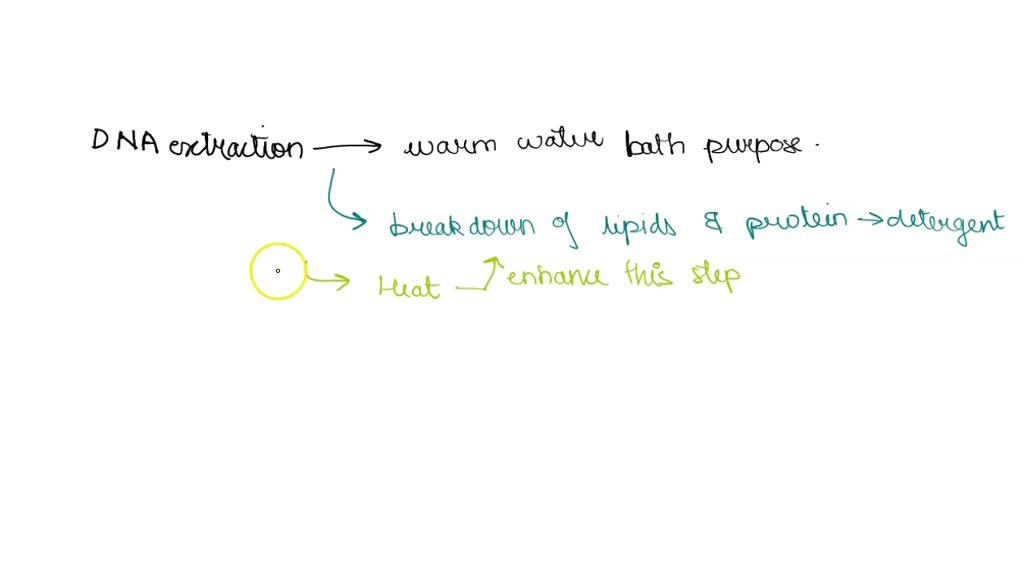 DNA extraction → warm water bath purpose.
breakdown of lipids & protein → detergent
Heat enhance this step